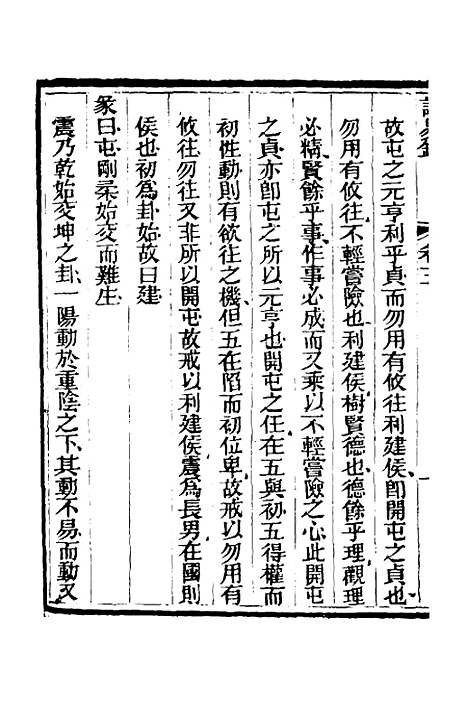 故屯之元亨利乎貞而勿用有攸往利建侯卽開屯之貞也
勿用有攸往不輕嘗險也利建侯樹賢德也德餘乎理觀理
必精賢餘乎事作事必成而又乘以不輕嘗險之心此開屯
之貞亦卽屯之所以元亨也開屯之任在五與初五得權而
初性動則有欲往之機但五在陷而初位卑故戒以勿用有
攸往勿往又非所以開屯故戒以利建侯震為長男在國則
侯也初為卦始故曰建
彖曰屯剛柔始交而難生
震乃乾始交坤之卦一陽動於重陰之下其動不易而動又